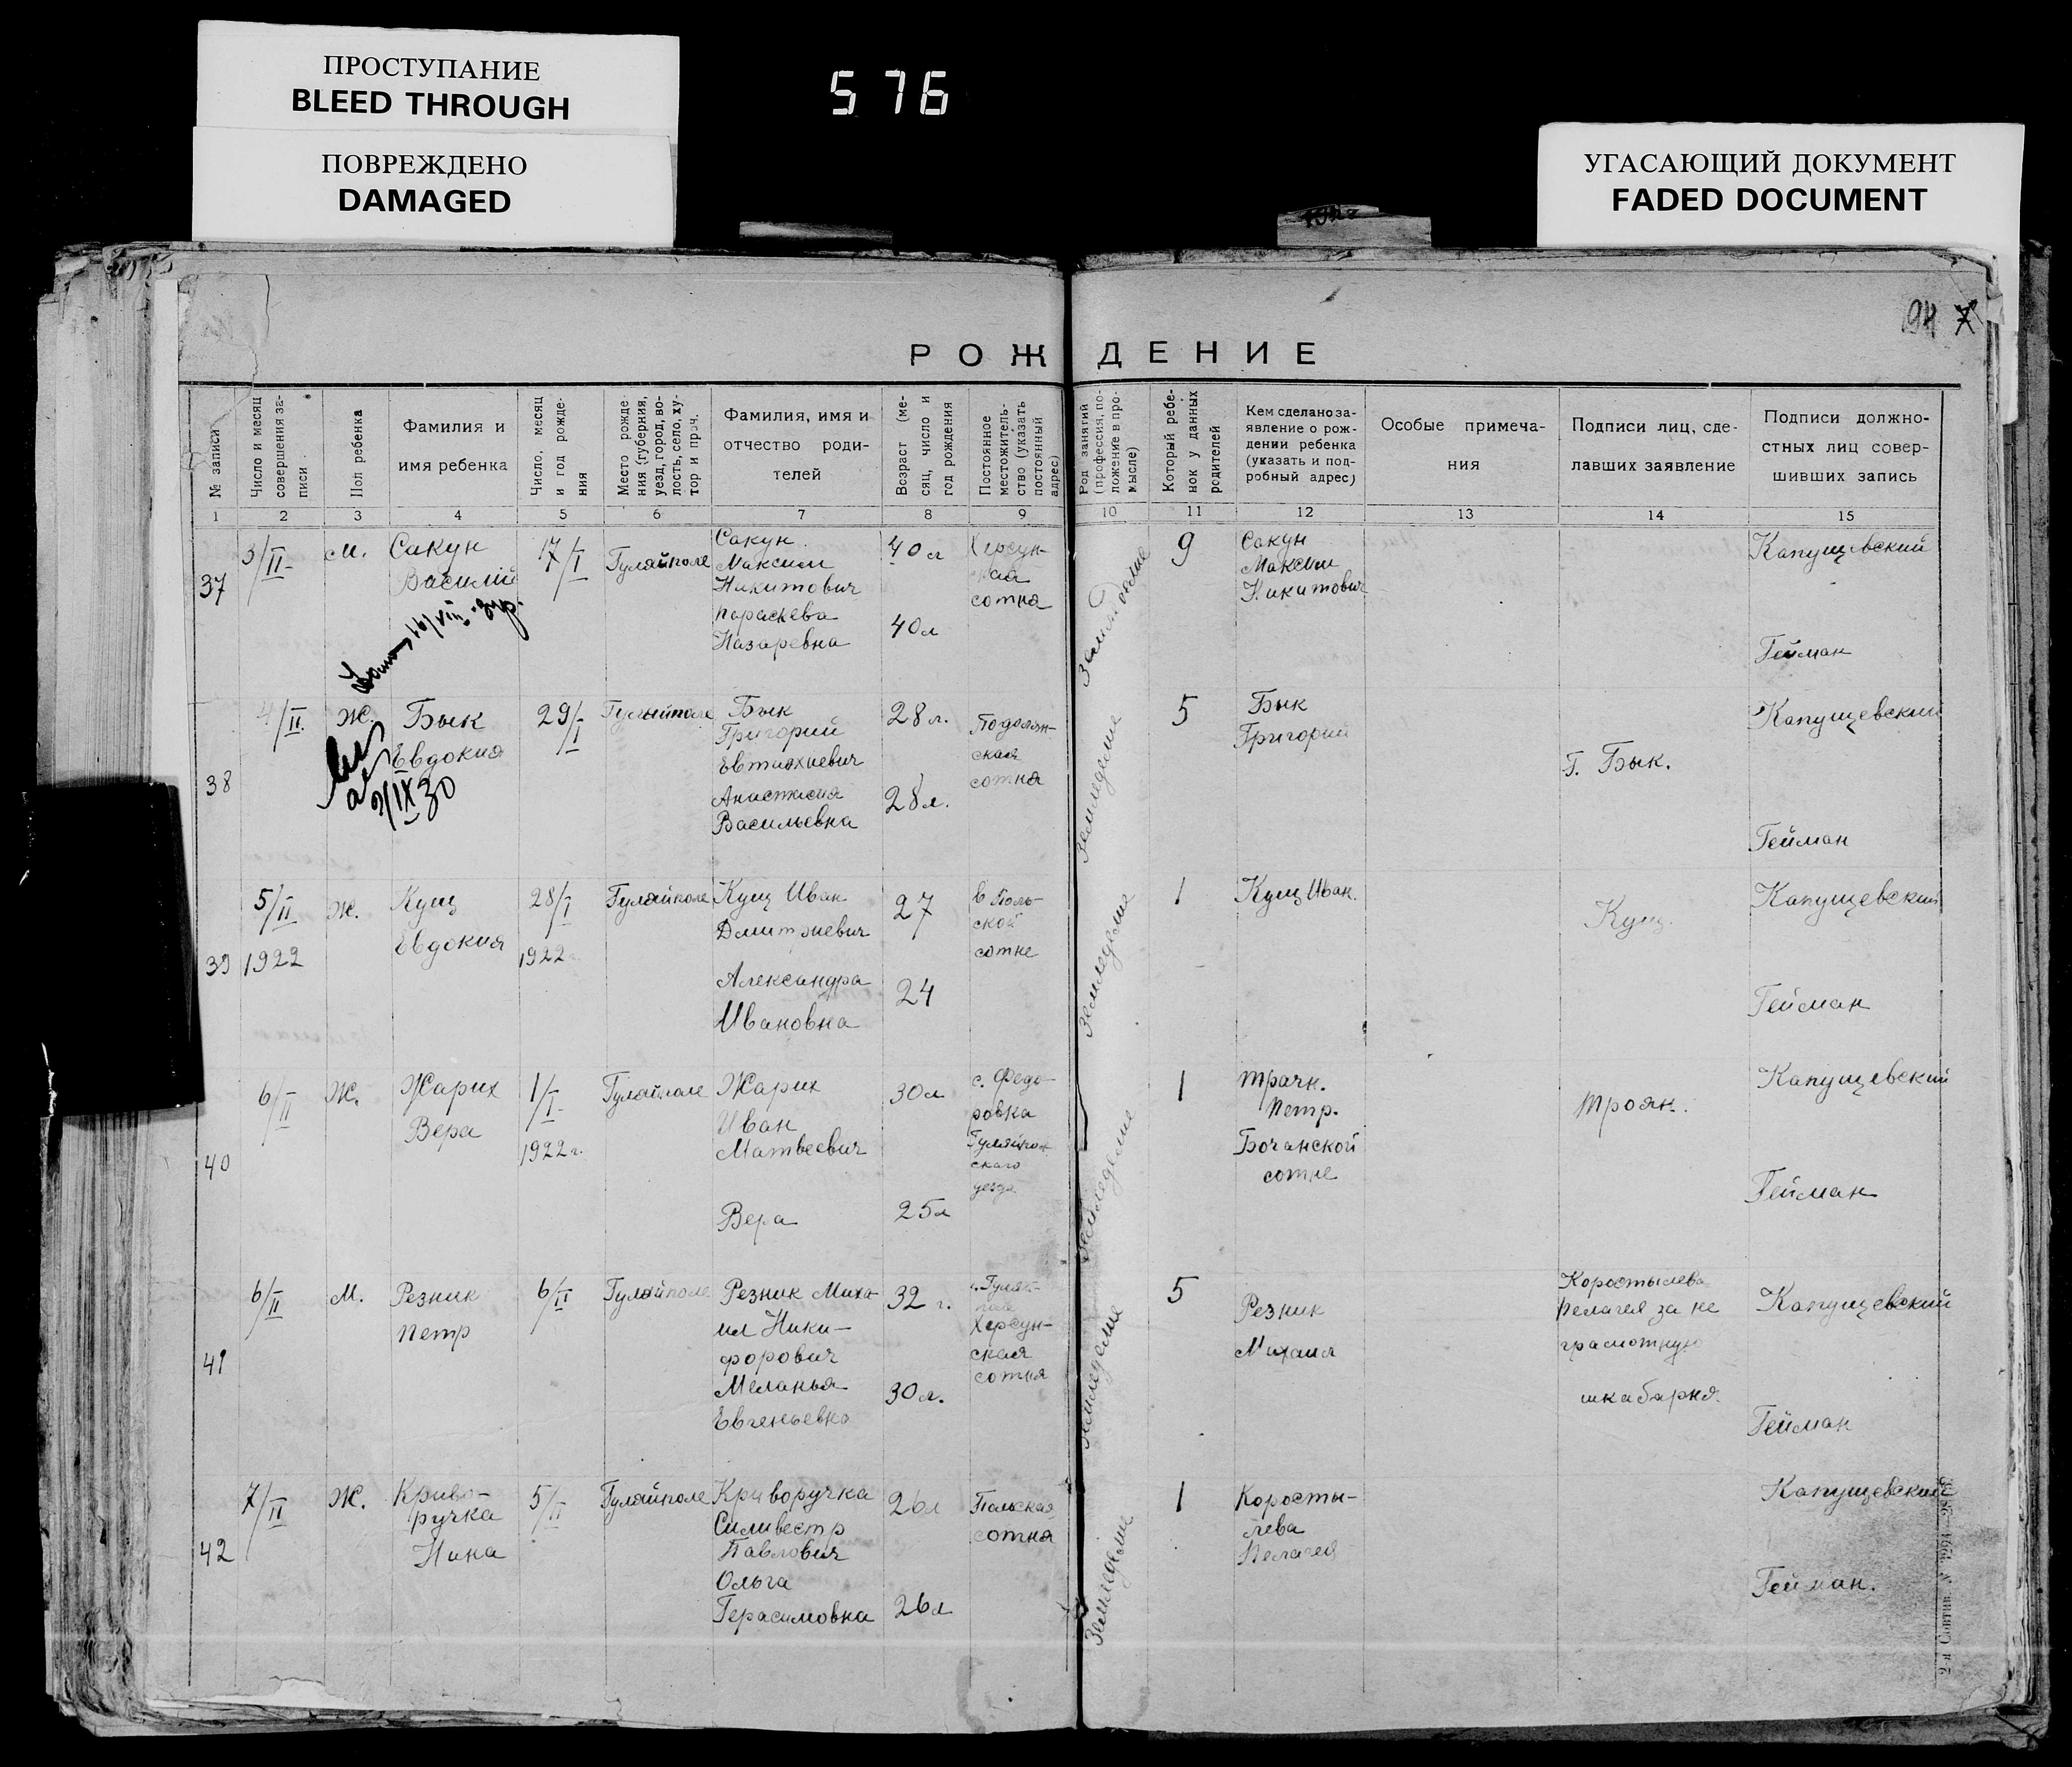 ПРОСТУПАНИЕ
BLEED THROUGH
ПОВРЕЖДЕНО
DAMAGED
576
УГАСАЮЩИЙ ДОКУМЕНТ
FADED DOCUMENT
РОЖДЕНИЕ
№ записи
Число и месяц
совершения за-
писи
Пол ребенка
Фамилия и
имя ребенка
Число, месяц
и год рожде-
ния
Место рожде-
ния (губерния,
уезд, город, во-
лость, село, ху-
тор и проч.
Фамилия, имя и
отчество роди-
телей
Возраст (ме-
сяц, число и
год рождения
Постоянное
местожитель-
ство (указать
постоянный
адрес)
Род занятий
(профессия, по-
ложение в про-
мысле)
Который ребе-
нок у данных
родителей
Кем сделано за-
явление о рож-
дении ребенка
(указать и под-
робный адрес)
Особые примеча-
ния
Подписи лиц, сде-
лавших заявление
Подписи должно-
стных лиц совер-
шивших запись
1 2 3 4 5 6 7 8 9 10 11 12 13 14 15
37
3/II
М.
Сакун
Василий
17/I
Гуляйполе
Сакун
Максим
Никитович
Параскева
Назаревна
40 л
40 л
Херсун-
кая
сотня
Земледелие
9
Сакун
Максим
Никитович
Капущевский
Гейман
16/VIII
38
4/II.
Ж.
Бык
Евдокия
29/I
Гуляйполе
Бык
Григорий
Евтихиевич
Анастасия
Васильевна
28 л.
28 л.
Подолян-
ская
сотня
Земледелие
5
Бык
Григорий
Г. Бык.
Капущевский
Гейман
2/IX 30
39
5/II
1922
Ж.
Кущ
Евдокия
28/I
1922
Гуляйполе
Кущ Иван
Дмитриевич
Александра
Ивановна
27
24
в Поль-
ской
сотне
Земледелие
1
Кущ Иван.
Кущ.
Капущевский
Гейман
40
6/II
Ж.
Жарих
Вера
1/I
1922 г.
Гуляйполе
Жарих
Иван
Матвеевич
Вера
30 л
25 л
с. Федо-
ровка
Гуляйпол
скаго
уезда
Земледелие
1
Петр.
Бочанской
сотне
Трояк.
Капущевский
Гейман
41
6/II
М.
Резник
Петр
6/II
Гуляйполе
Резник Миха-
ил Ники-
форович
Меланья
Евгеньевна
32 г.
30 л.
Гуляй-
поле
Херсун-
ская
сотня
Земледелие
5
Резник
Михаил
Коростылева
Пелагея за не
грамотную
шкабарня.
Капущевский
Гейман
42
7/II
Ж.
Криво-
ручка
Нина
5/II
Гуляйполе
Криворучка
Силивестр
Павлович
Ольга
Герасимовна
26 л
26 л
Польская
сотня
Земледелие
1
Коросты-
лева
Пелагея
Капущевский
Гейман.